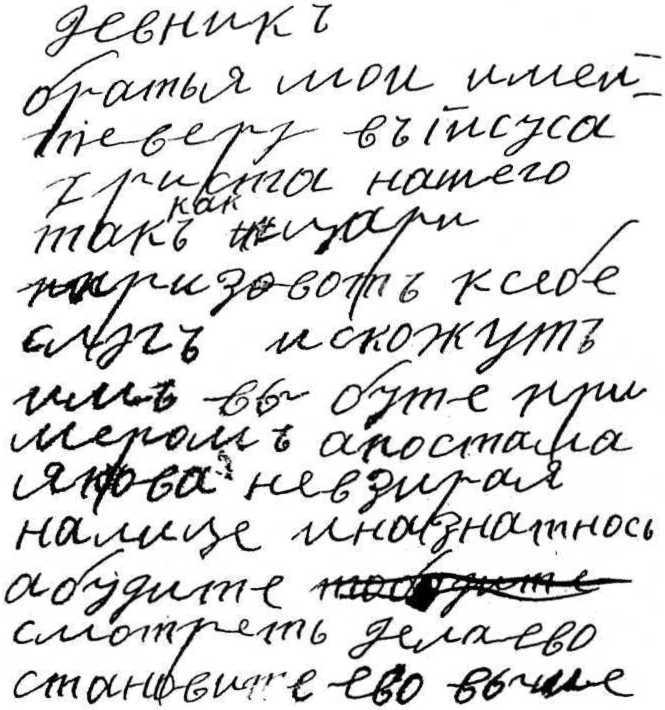 девникъ
братья мои имей=
теверу въ Іисуса
христа нашего
такъ как цари
призовотъ к себе
слугъ искожутъ
имъ вы буте при
меромъ апостама
якова невзирая
налице иназнатнось
абудите тободите
смотреть дела ево
становите ево выше